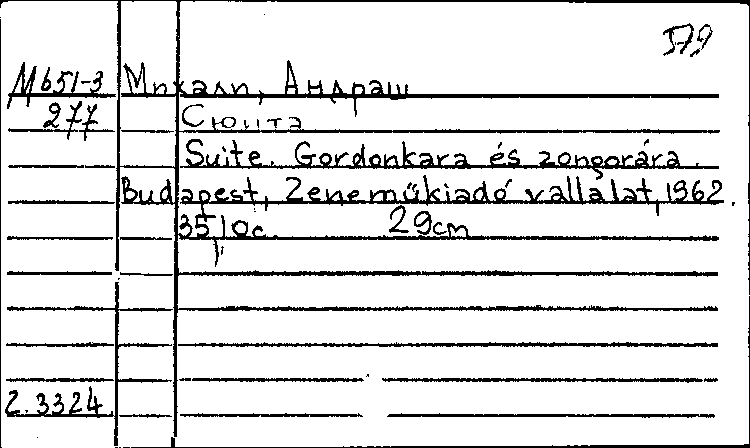 579
М651-3 Михали, Андраш
277 Сюита
Suite. Gordonkara és zongorára.
Budapest, Zeneműkiadó vallalat, 1962.
35,10c. 29cm
2.3324